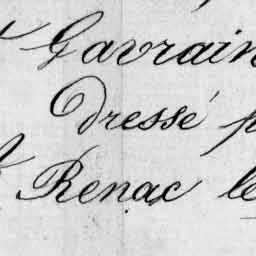 Gavrain
Dressé p
Renac le